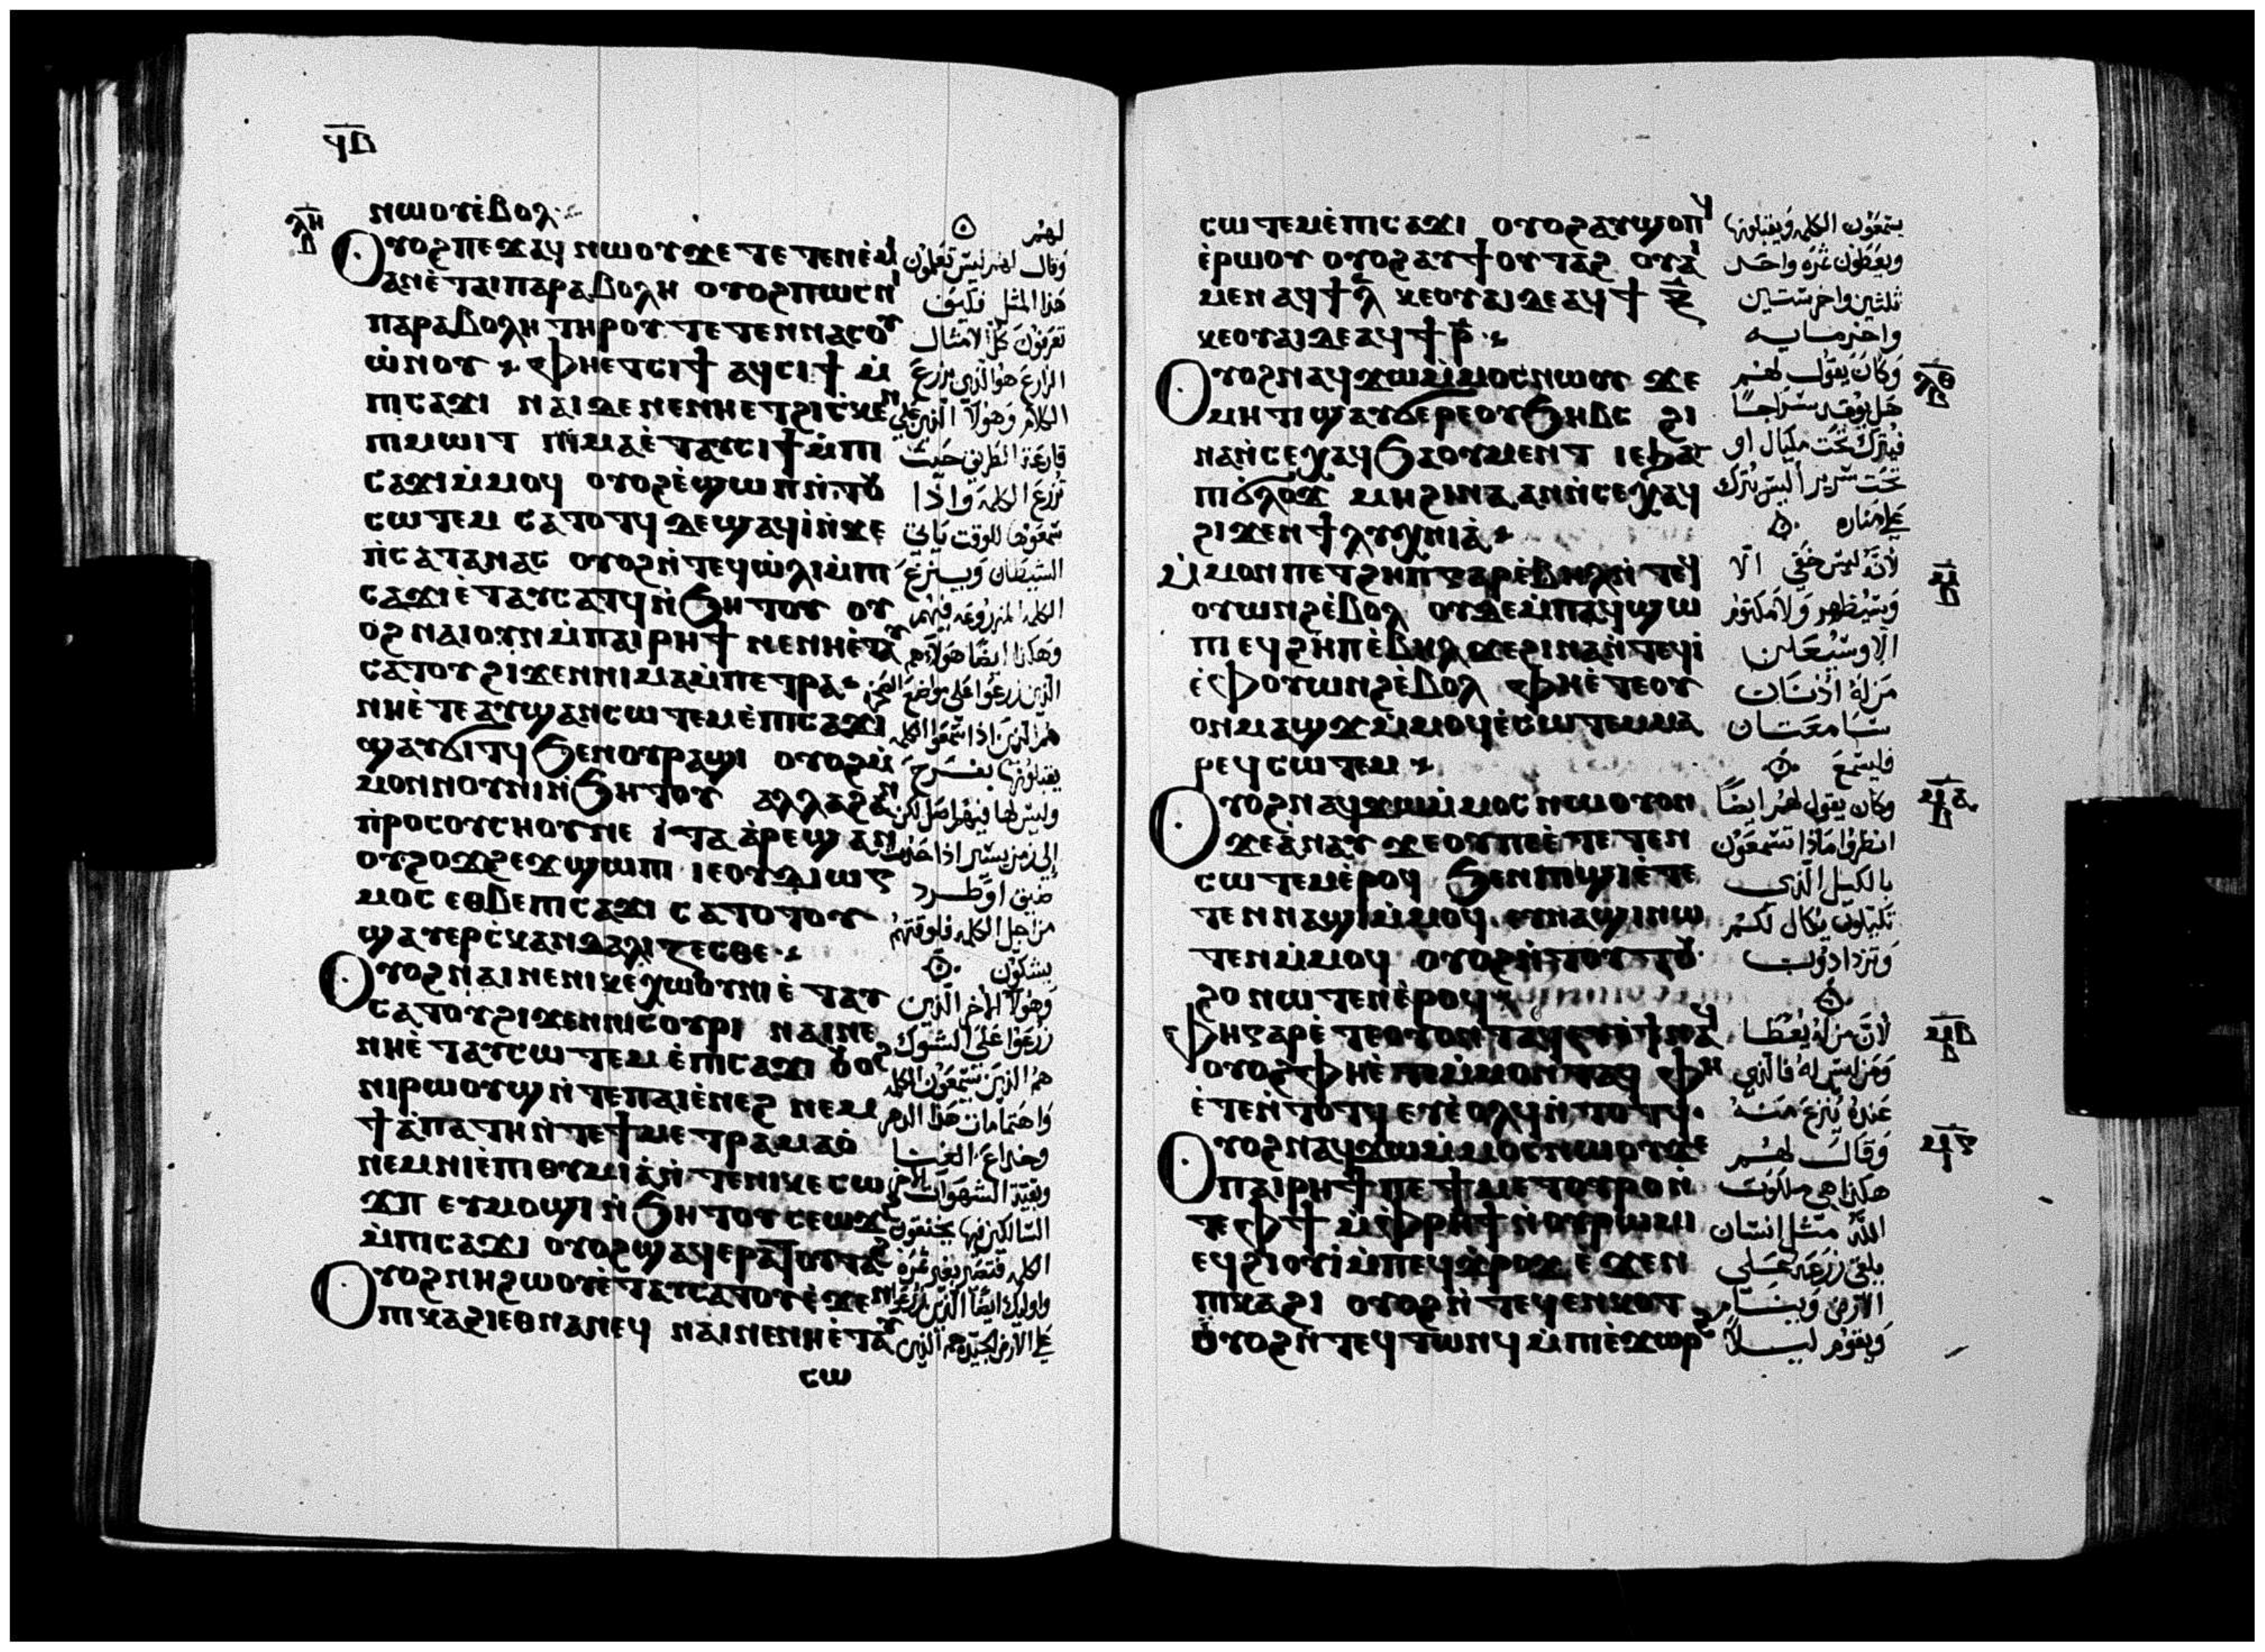 ϥⲃ
ⲛⲱⲟⲩⲉ̀ⲃⲟⲗ
ⲗⲏ
ⲟⲩⲟϩⲡⲉϫⲁϥ ⲛⲱⲟⲩϫⲉ ⲧⲉⲧⲉⲛⲉ̀ⲙⲓ
ⲁⲛⲉ̀ⲧⲁⲓⲡⲁⲣⲁⲃⲟⲗⲏ ⲟⲩⲟϩⲡⲱⲥⲛⲓ
ⲡⲁⲣⲁⲃⲟⲗⲏ ⲧⲏⲣⲟⲩ ⲧⲉⲧⲉⲛⲛⲁⲥⲟⲩ
ⲱ̀ⲛⲟⲩ ⲫⲏⲉⲧⲥⲓϯ ⲁϥⲥⲓϯ ⲙ̀
ⲡⲓⲥⲁϫⲓ ⲛⲁⲓⲇⲉⲛⲉⲛⲏⲉⲧϩⲓⲥ̀ⲕⲉⲛ
ⲡⲓⲙⲱⲓⲧ ⲡⲓⲙⲁⲉ̀ⲧⲁⲩⲥⲓϯⲙ̀ⲡⲓ
ⲥⲁϫⲓⲙ̀ⲙⲟϥ ⲟⲩⲟϩⲉ̀ϣⲱⲡⲛ̀ⲧⲟⲩ
ⲥⲱⲧⲉⲙ ⲥⲁⲧⲟⲧϥ ⲇⲉϣⲁϥⲓ̀ⲛ̀ϫⲉ
ⲡ̀ⲥⲁⲧⲁⲛⲁⲥ ⲟⲩⲟϩⲛ̀ⲧⲉϥⲱ̀ⲗⲓⲙ̀ⲡⲓ
ⲥⲁϫⲓⲉ̀ⲧⲁⲩⲥⲁⲧϥⲛ̀ϧⲏⲧⲟⲩ ⲟⲩ
ⲟϩ ⲛⲁⲓⲟⲩⲛⲙ̀ⲡⲁⲓⲣⲏϯ ⲛⲉⲛⲏⲉ̀ⲧⲁⲩ
ⲥⲁⲧⲟⲩ ϩⲓϫⲉⲛⲛⲓⲙⲁⲙ̀ⲡⲉⲧⲣⲁ
ⲛⲏⲉ̀ⲧⲉ ⲁⲩϣⲁⲛⲥⲱⲧⲉⲙⲉ̀ⲡⲓⲥⲁϫⲓ
ϣⲁⲩϭⲓⲧϥ ϧⲉⲛⲟⲩⲣⲁϣⲓ ⲟⲩⲟϩⲙ̀
ⲙⲟⲛⲛⲟⲩⲛⲓⲛ̀ϧⲏⲧⲟⲩ ⲁⲗⲗⲁϩⲁⲛ
ⲡ̀ⲣⲟⲥⲟⲩⲥⲛⲟⲩⲛⲉ ⲓ̀ⲧⲁ ⲁ̀ⲣⲉϣⲁⲛ
ⲟⲩϩⲟϫϩⲉϫ ϣⲱⲡⲓ ⲓⲉⲟⲩⲇⲓⲱⲅ
ⲙⲟⲥ ⲉⲑⲃⲉⲡⲓⲥⲁϫⲓ ⲥⲁⲧⲟⲧⲟⲩ
ϣⲁⲩⲉⲣⲥ̀ⲕⲁⲛⲇⲁⲗⲓⲍⲉⲥⲑⲉ
ⲟⲩⲟϩⲛ̀ⲁⲓⲛⲉⲛⲓⲕⲉⲭⲱⲟⲩⲛⲓ ⲉ̀ⲧⲁⲩ
ⲥⲁⲧⲟⲩϩⲓϫⲉⲛⲛⲓⲥⲟⲩⲣⲓ ⲛⲁⲓⲛⲉ
ⲛⲏⲉ̀ⲧⲁⲩⲥⲱⲧⲉⲙ ⲉ̀ⲡⲓⲥⲁϫⲓ ⲟⲩⲟϩ
ⲛⲓⲣⲱⲟⲩϣⲛ̀ⲧⲉⲡⲁⲓⲉ̀ⲛⲉϩ ⲛⲉⲙ
ϯⲁ̀ⲡⲁⲧⲏⲛ̀ⲧⲉϯⲙⲉⲧⲣⲁⲙⲁⲟ̀
ⲛⲉⲙⲛⲓⲉ̀ⲡⲓⲑⲩⲙⲓⲁ̀ⲛ̀ⲧⲉⲛⲓⲕⲉⲥⲱ
ϫⲡ ⲉⲩⲙⲟϣⲓ ⲛ̀ϧⲏⲧⲟⲩ ⲥⲉⲱϫϩ
ⲙ̀ⲡⲓⲥⲁϫⲓ ⲟⲩⲟϩϣⲁϥⲉⲣⲁⲧⲟⲩⲧⲁϩ
ⲟⲩⲟϩⲛⲏϩⲱⲟⲩⲉ̀ⲧⲁⲩⲥⲁⲧⲟⲩⲉ̀ϫⲉⲛ
ⲡⲓⲕⲁϩⲓⲉⲑⲛⲁⲛⲉϥ ⲛⲁⲓⲛⲉⲛⲏⲉ̀ⲧⲁⲩ
ⲥⲱ
لهم
وقال لهم ليس تعلمون
هذا المثل فكيف
تعرفون كل الامثال
الزارع هو الذي يزرع
الكلام وهولا الذين على
قارعة الطريق حيث
تزرع الكلمه واذا
سمعوها للوقت ياتي
الشيطان وينزع
الكلمه المزروعه فيهم
وهكذا ايضا هولاهم
الذين زرعوا على مواضع الصخر
هم الذين اذا سمعوا الكلمه
يقبلونها بفرح
وليس لها فيهم اصل لكن
الى زمن يسير اذا حدث
ضيق او طرد
من اجل الكلمه فللوقتهم
يشكون
وهولا الاخر الذين
زرعوا على الشوك
هم الذين يسمعون الكلمه
واهتمامات هذا الدهر
وخداع الغنا
وبقية الشهوات الاخر
السالكين فيها يخنقون
الكلمه فتصير بغير ثمره
واوليك ايضا الذين زرعوا
على الارض الجيده هم الذين
ⲥⲱⲧⲉⲙⲉ̀ⲡⲓⲥⲁϫⲓ ⲟⲩⲟϩⲁⲩϣⲟⲡϥ
ⲉ̀ⲣⲱⲟⲩ ⲟⲩⲟϩⲁⲩϯⲟⲩⲧⲁϩ ⲟⲩⲁⲓ
ⲙⲉⲛ ⲁϥϯⲗ̅ ⲕⲉⲟⲩⲁⲓⲇⲉⲁϥϯ ⲝ̅
ⲕⲉⲟⲩⲁⲓⲇⲉⲁϥϯⲣ̅
ⲟⲩⲟϩⲛⲁϥϫⲱⲙ̀ⲙⲟⲥⲛⲱⲟⲩ ϫⲉ
ⲙⲏⲧⲓ ϣⲁⲩϭⲉⲣⲉⲟⲩϧⲏⲃⲥ ϩⲓ
ⲛⲁⲛ̀ⲥⲉⲭⲁϥϧⲁⲟⲩⲙⲉⲛⲧ ⲓⲉϧⲁ
ⲡⲓϭⲗⲟϫ ⲙⲏϩⲓⲛⲁ ⲁⲛⲛ̀ⲥⲉⲭⲁϥ
ϩⲓϫⲉⲛϯⲗⲩⲭⲛⲓⲁ̀
ⲙ̀ⲙⲟⲛⲡⲉⲧϩⲏⲡⲅⲁⲣⲉ̀ⲃⲏⲗⲛ̀ⲧⲉϥ
ⲟⲩⲱⲛϩⲉ̀ⲃⲟⲗ ⲟⲩⲇⲉⲙ̀ⲡⲁϥϣⲱ
ⲡⲓ ⲉϥϩⲏⲡⲉ̀ⲃⲏⲗ ϫⲉϩⲓⲛⲁⲛ̀ⲧⲉϥⲓ̀
ⲉ̀ⲫⲟⲩⲱⲛϩⲉ̀ⲃⲟⲗ ⲫⲏⲉ̀ⲧⲉⲟⲩ
ⲟⲛⲙⲁϣϫⲙ̀ⲙⲟϥⲉ̀ⲥⲱⲧⲉⲙⲙⲁ
ⲣⲉϥⲥⲱⲧⲉⲙ
ⲟⲩⲟϩⲛⲁϥϫⲱⲙ̀ⲙⲟⲥ ⲛⲱⲟⲩⲟⲛ
ϫⲉⲁ̀ⲛⲁⲩ ϫⲉⲟⲩⲡⲉⲉ̀ⲧⲉⲧⲉⲛ
ⲥⲱⲧⲉⲙⲉ̀ⲣⲟϥ ϧⲉⲛⲡⲓϣⲓⲉ̀ⲧⲉ
ⲧⲉⲛⲛⲁϣⲓⲙ̀ⲙⲟϥ ⲉⲩⲛⲁϣⲓⲛⲱ
ⲧⲉⲛⲙ̀ⲙⲟϥ ⲟⲩⲟϩⲛ̀ⲧⲟⲩⲧⲟⲩ
ϩⲟ ⲛⲱⲧⲉⲛⲉ̀ⲣⲟϥ
ⲫⲏⲅⲁⲣⲉ̀ⲧⲉⲟⲩⲟⲛⲧⲁϥⲉⲩⲉ̀ϯⲛⲁϥ
ⲟⲩⲟϩⲫⲏⲉ̀ⲧⲉⲙ̀ⲙⲟⲛⲧⲁϥ ⲫⲏ
ⲉ̀ⲧⲉⲛ̀ⲧⲟⲧϥ ⲉⲩⲉ̀ⲟⲗϥⲛ̀ⲧⲟⲧϥ
ⲟⲩⲟϩⲛⲁϥϫⲱⲙ̀ⲙⲟⲥⲛⲱⲟⲩϫⲉ
ⲡⲁⲓⲣⲏϯⲡⲉϯⲙⲉⲧⲟⲩⲣⲟⲛ̀
ⲧⲉⲫϯ ⲙ̀ⲫⲣⲏϯⲛ̀ⲟⲩⲣⲱⲙⲓ
ⲉϥϩⲓⲟⲩⲓ̀ⲙ̀ⲡⲉϥϫⲣⲟϫ ⲉ̀ϫⲉⲛ
ⲡⲓⲕⲁϩⲓ ⲟⲩⲟϩⲛ̀ⲧⲉϥⲉⲛⲕⲟⲧ
ⲟⲩⲟϩⲛ̀ⲧⲉϥⲧⲱⲛϥ ⲙ̀ⲡⲓⲉ̀ϫⲱⲣϩ
يسمعون الكلمه ويقبلونها
ويعطون ثمره واحد
ثلثين واخر ستين
واخر مايه
وكان يقول لهم
هل يوقد سراجا
فيترك تحت مكيال او
تحت سرير أليس يترك
على مناره
لانه ليس خفي الا
وسيظهر ولا مكتوم
الا وسيعلن
من له اذنان
سامعتان
فليسمع
وكان يقول لهم ايضا
انظروا ماذا تسمعون
بالكيل الذي
تكيلون يكال لكم
وتزدادون
لان من له يعطا
ومن ليس له فالذي
عنده ينزع منه
وقال لهم
هكذا هي ملكوت
الله مثل انسان
يلقي زرعه على
الارض وينام
ويقوم ليلا
ⲗⲑ
ⲙ
ⲙⲁ
ⲙⲃ
ⲙⲅ